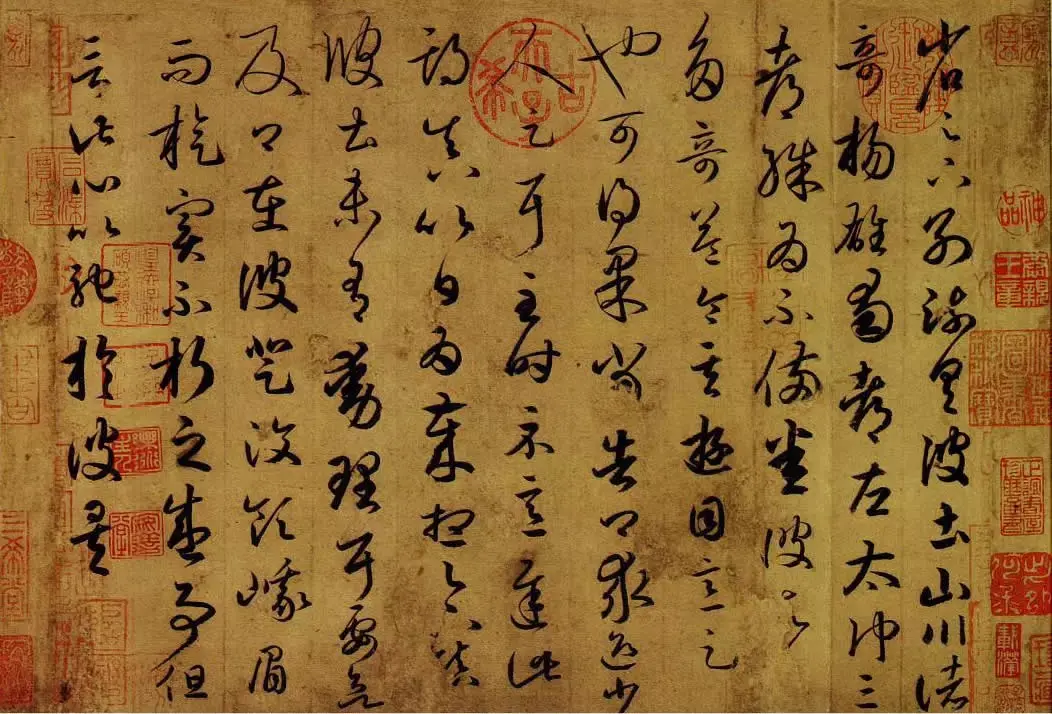 省足下別疏具彼土山川諸
奇揚雄蜀都左太沖三
都殊為不備悉彼故為
多奇益令其遊目意足
也可得果當告卿求迎少
人足耳至時示意遲此
期真以日為歲想足下鎮
彼土未有動理耳要欲
及卿在彼登汶領峨眉
而旋實不朽之盛事但
言此心以馳於彼矣
古希天子
神品
三希堂